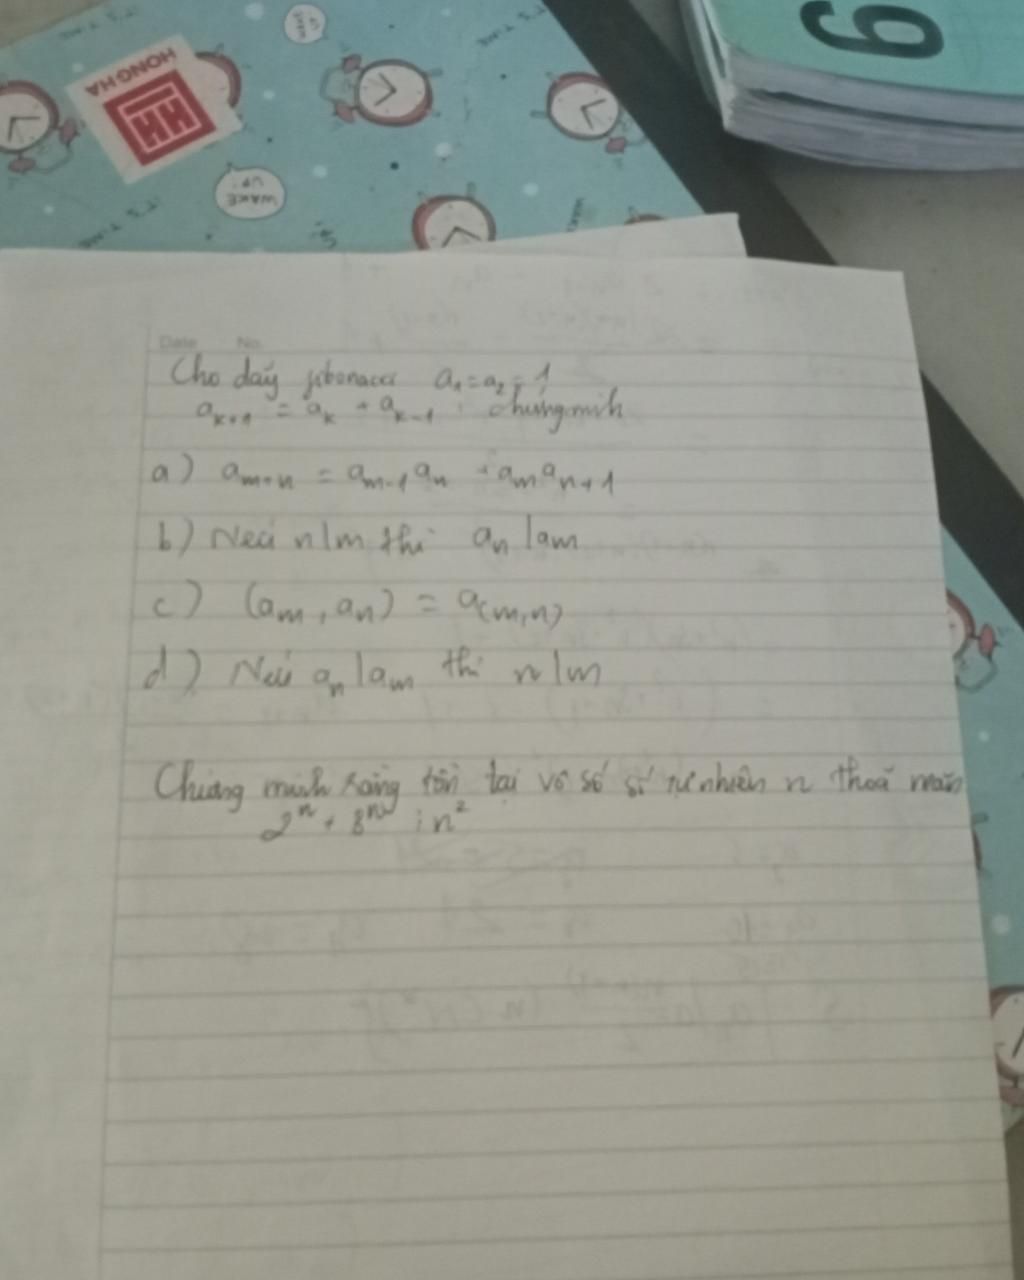 HONG HA
WAKE
UP!
9
Date No.
Cho dãy fibonacci a₁ = a₂ = 1
aₖ₊₁ = aₖ + aₖ₋₁ . chứng minh
a) aₘ₊ₙ = aₘ₋₁aₙ + aₘaₙ₊₁
b) Nếu n|m thì aₙ|aₘ
c) (aₘ, aₙ) = a₍ₘ,ₙ₎
d) Nếu aₙ|aₘ thì n|m
Chứng minh rằng tồn tại vô số số tự nhiên n thoả mãn
2ⁿ + 8ⁿ ⋮ n²